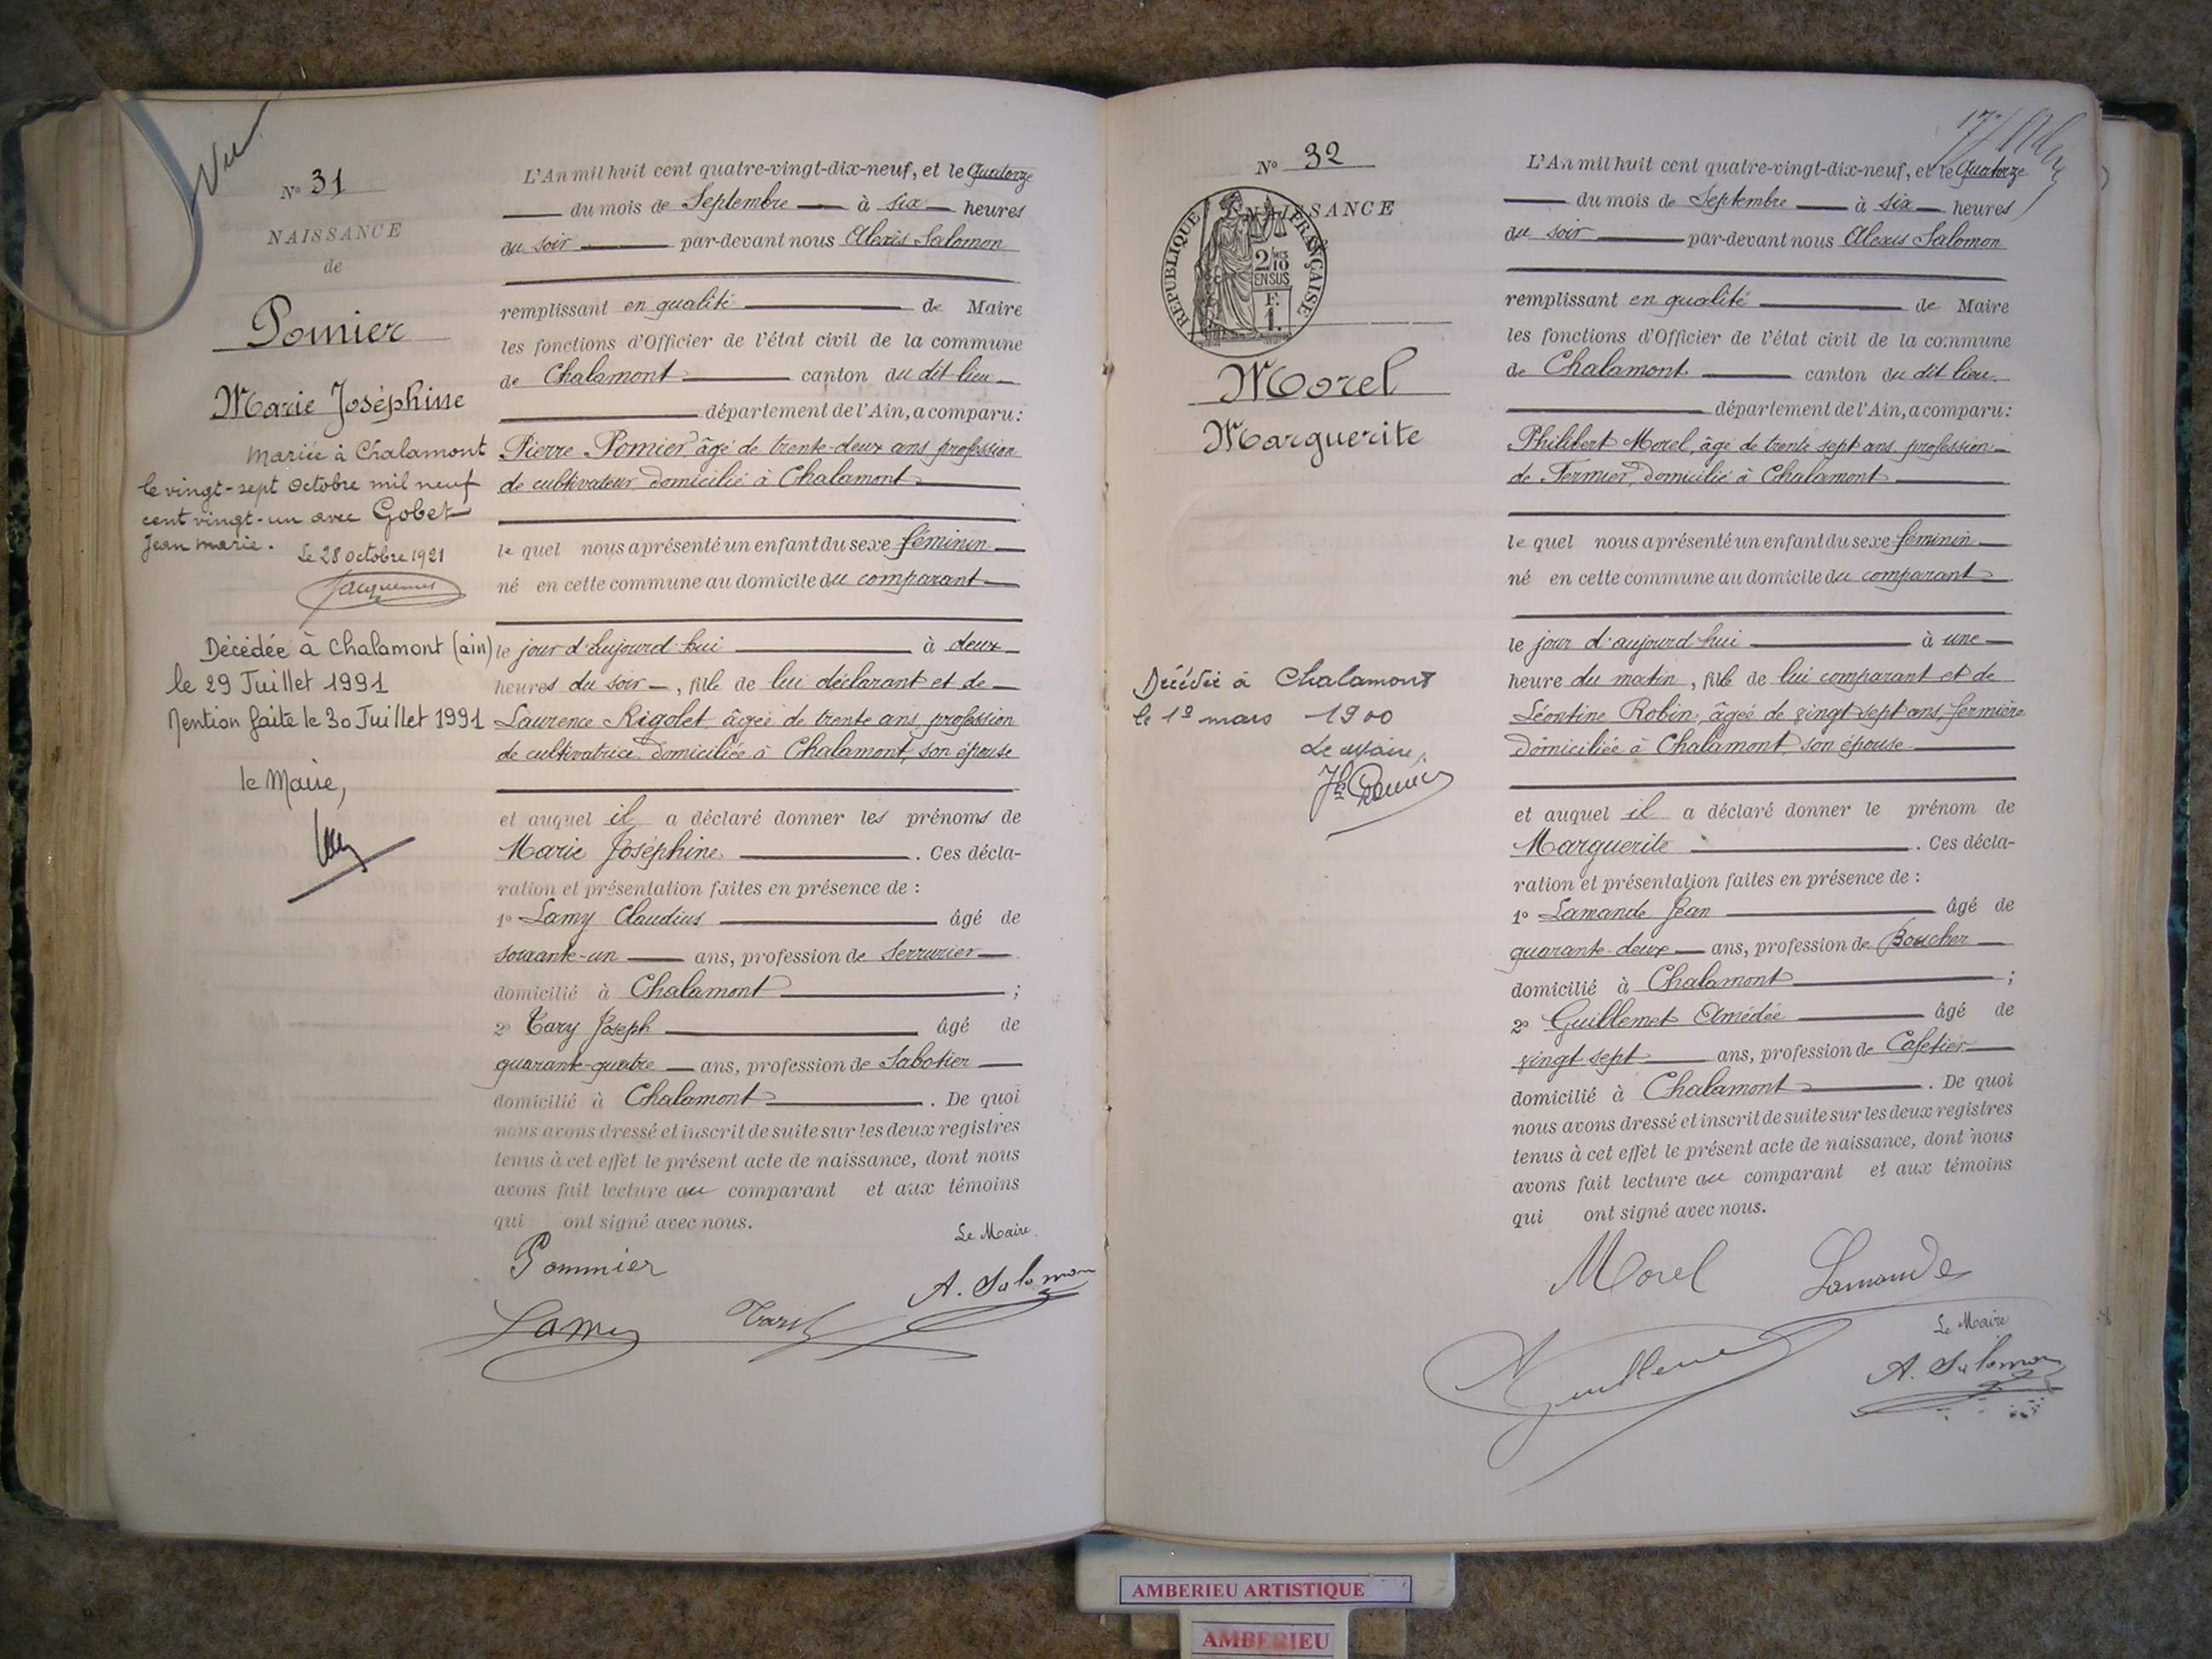 Vu
N° 31
NAISSANCE
de
Pomier
Marie Joséphine
mariée à Chalamont
le vingt-sept Octobre mil neuf
cent vingt-un avec Gobet
Jean marie.
Le 28 octobre 1921
Décédée à Chalamont (ain)
le 29 Juillet 1991
Mention faite le 30 Juillet 1991
le Maire,
L'An mil huit cent quatre-vingt-dix-neuf, et le Quatorze
du mois de Septembre à six heures
du soir par-devant nous Alexis Salomon
remplissant en qualité de Maire
les fonctions d'Officier de l'état civil de la commune
de Chalamont canton du dit lieu
département de l'Ain, a comparu :
Pierre Pomier âgé de trente-deux ans profession
de cultivateur, domicilié à Chalamont
le quel nous a présenté un enfant du sexe féminin
né en cette commune au domicile du comparant
le jour d'aujourd'hui à deux
heures du soir, fille de lui déclarant et de
Laurence Rigolet, âgée de trente ans, profession
de cultivatrice domiciliée à Chalamont, son épouse
et auquel il a déclaré donner les prénoms de
Marie Joséphine. Ces décla-
ration et présentation faites en présence de :
1° Lamy Claudius âgé de
soixante-un ans, profession de Serrurier
domicilié à Chalamont ;
2° Tary Joseph âgé de
quarante-quatre ans, profession de Sabotier
domicilié à Chalamont. De quoi
nous avons dressé et inscrit de suite sur les deux registres
tenus à cet effet le présent acte de naissance, dont nous
avons fait lecture au comparant et aux témoins
qui ont signé avec nous.
Le Maire.
Pommier
A. Salomon
Lamy Tary
N° 32
NAISSANCE
RÉPUBLIQUE FRANÇAISE
2/10
EN SUS
F.
1.
Morel
Marguerite
Décédée à Chalamont
le 1er mars 1900
Le Maire,
L'An mil huit cent quatre-vingt-dix-neuf, et le Quatorze
du mois de Septembre à six heures
du soir par-devant nous Alexis Salomon
remplissant en qualité de Maire
les fonctions d'Officier de l'état civil de la commune
de Chalamont canton du dit lieu
département de l'Ain, a comparu :
Philibert Morel, âgé de trente sept ans, profession
de Fermier, domicilié à Chalamont
le quel nous a présenté un enfant du sexe féminin
né en cette commune au domicile du comparant
le jour d'aujourd'hui à une
heure du matin, fille de lui comparant et de
Léontine Robin, âgée de vingt sept ans, fermière
domiciliée à Chalamont, son épouse
et auquel il a déclaré donner le prénom de
Marguerite. Ces décla-
ration et présentation faites en présence de :
1° Lamande Jean âgé de
quarante-deux ans, profession de Boucher
domicilié à Chalamont ;
2° Guillemet Amédée âgé de
vingt sept ans, profession de Cafetier
domicilié à Chalamont. De quoi
nous avons dressé et inscrit de suite sur les deux registres
tenus à cet effet le présent acte de naissance, dont nous
avons fait lecture au comparant et aux témoins
qui ont signé avec nous.
Morel Lamande
Le Maire
A. Guillemet
A. Salomon
AMBERIEU ARTISTIQUE
AMBERIEU